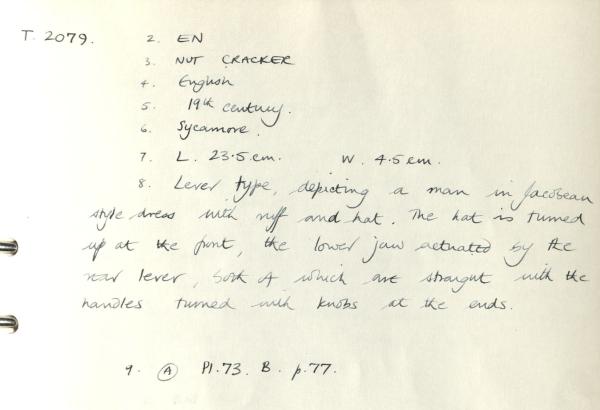 T. 2079. 2. EN
3. NUT CRACKER
4. English
5. 19th century.
6. Sycamore.
7. L. 23.5.cm. W. 4.5 cm.
8. Lever type, depicting a man in Jacobean
style dress with ruff and hat. The hat is turned
up at the front, the lower jaw actuated by the
rear lever, both of which are straight with the
handles turned with knobs at the ends.
9. A Pl.73. B. p.77.